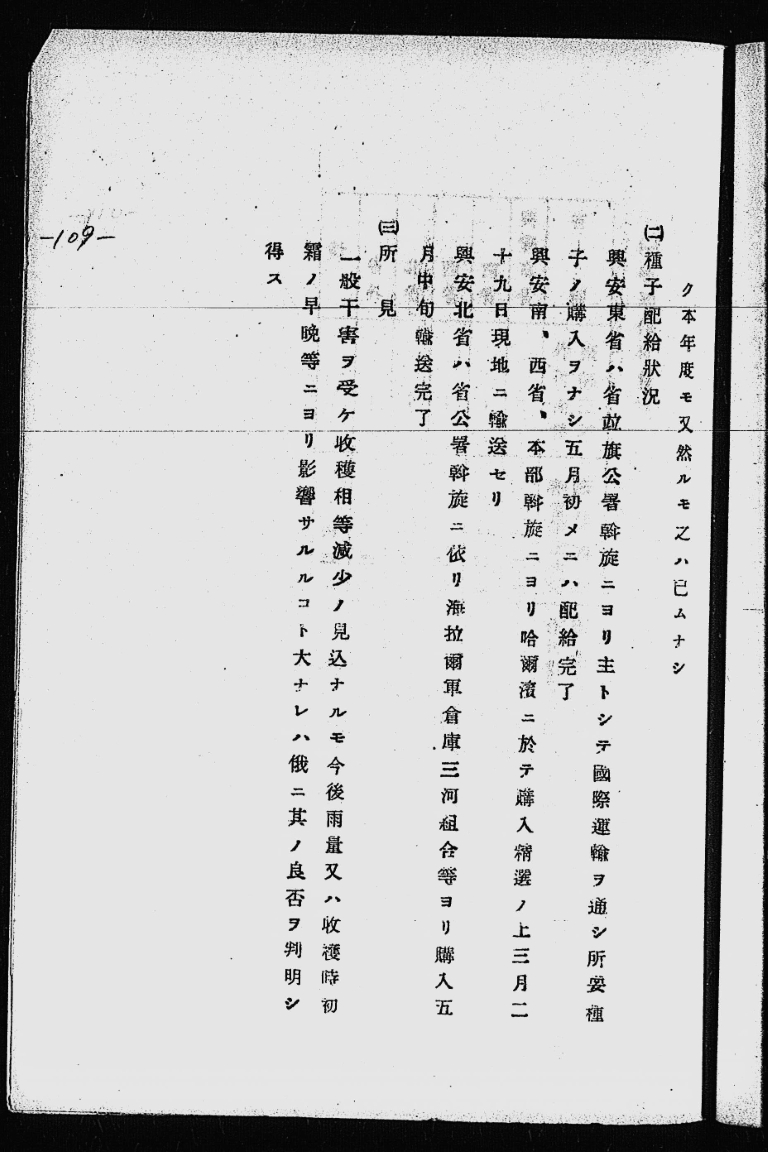 ク本年度モ又然ルモ之ハ已ムナシ
㈡種子配給狀況
興安東省ハ省竝旗公署斡旋ニヨリ主トシテ國際運輸ヲ通シ所要種
子ノ購入ヲナシ五月初メニハ配給完了
興安南、西省、本部斡旋ニヨリ哈爾濱ニ於テ購入精選ノ上三月二
十九日現地ニ輸送セリ
興安北省ハ省公署斡旋ニ依リ海拉爾軍倉庫三河組合等ヨリ購入五
月中旬輸送完了
㈢所見
一般干害ヲ受ケ收穫相等減少ノ見込ナルモ今後雨量又ハ收穫時初
霜ノ早晩等ニヨリ影響サルルコト大ナレハ俄ニ其ノ良否ヲ判明シ
得ス
-109-